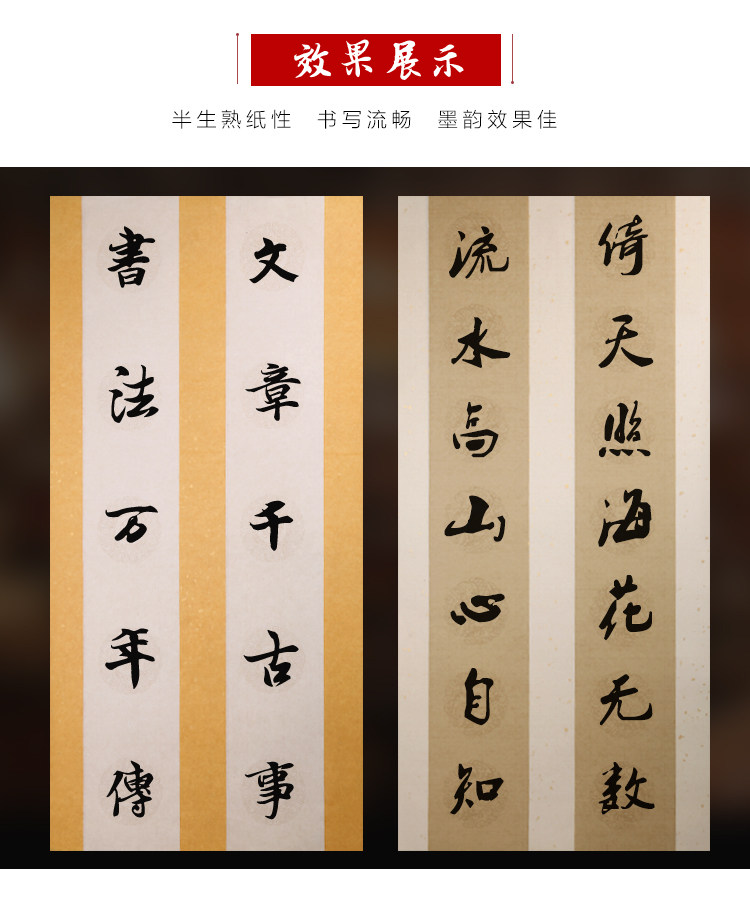 效果展示
半生熟纸性 书写流畅 墨韵效果佳
文章千古事
書法万年傳
倚天照海花无数
流水高山心自知